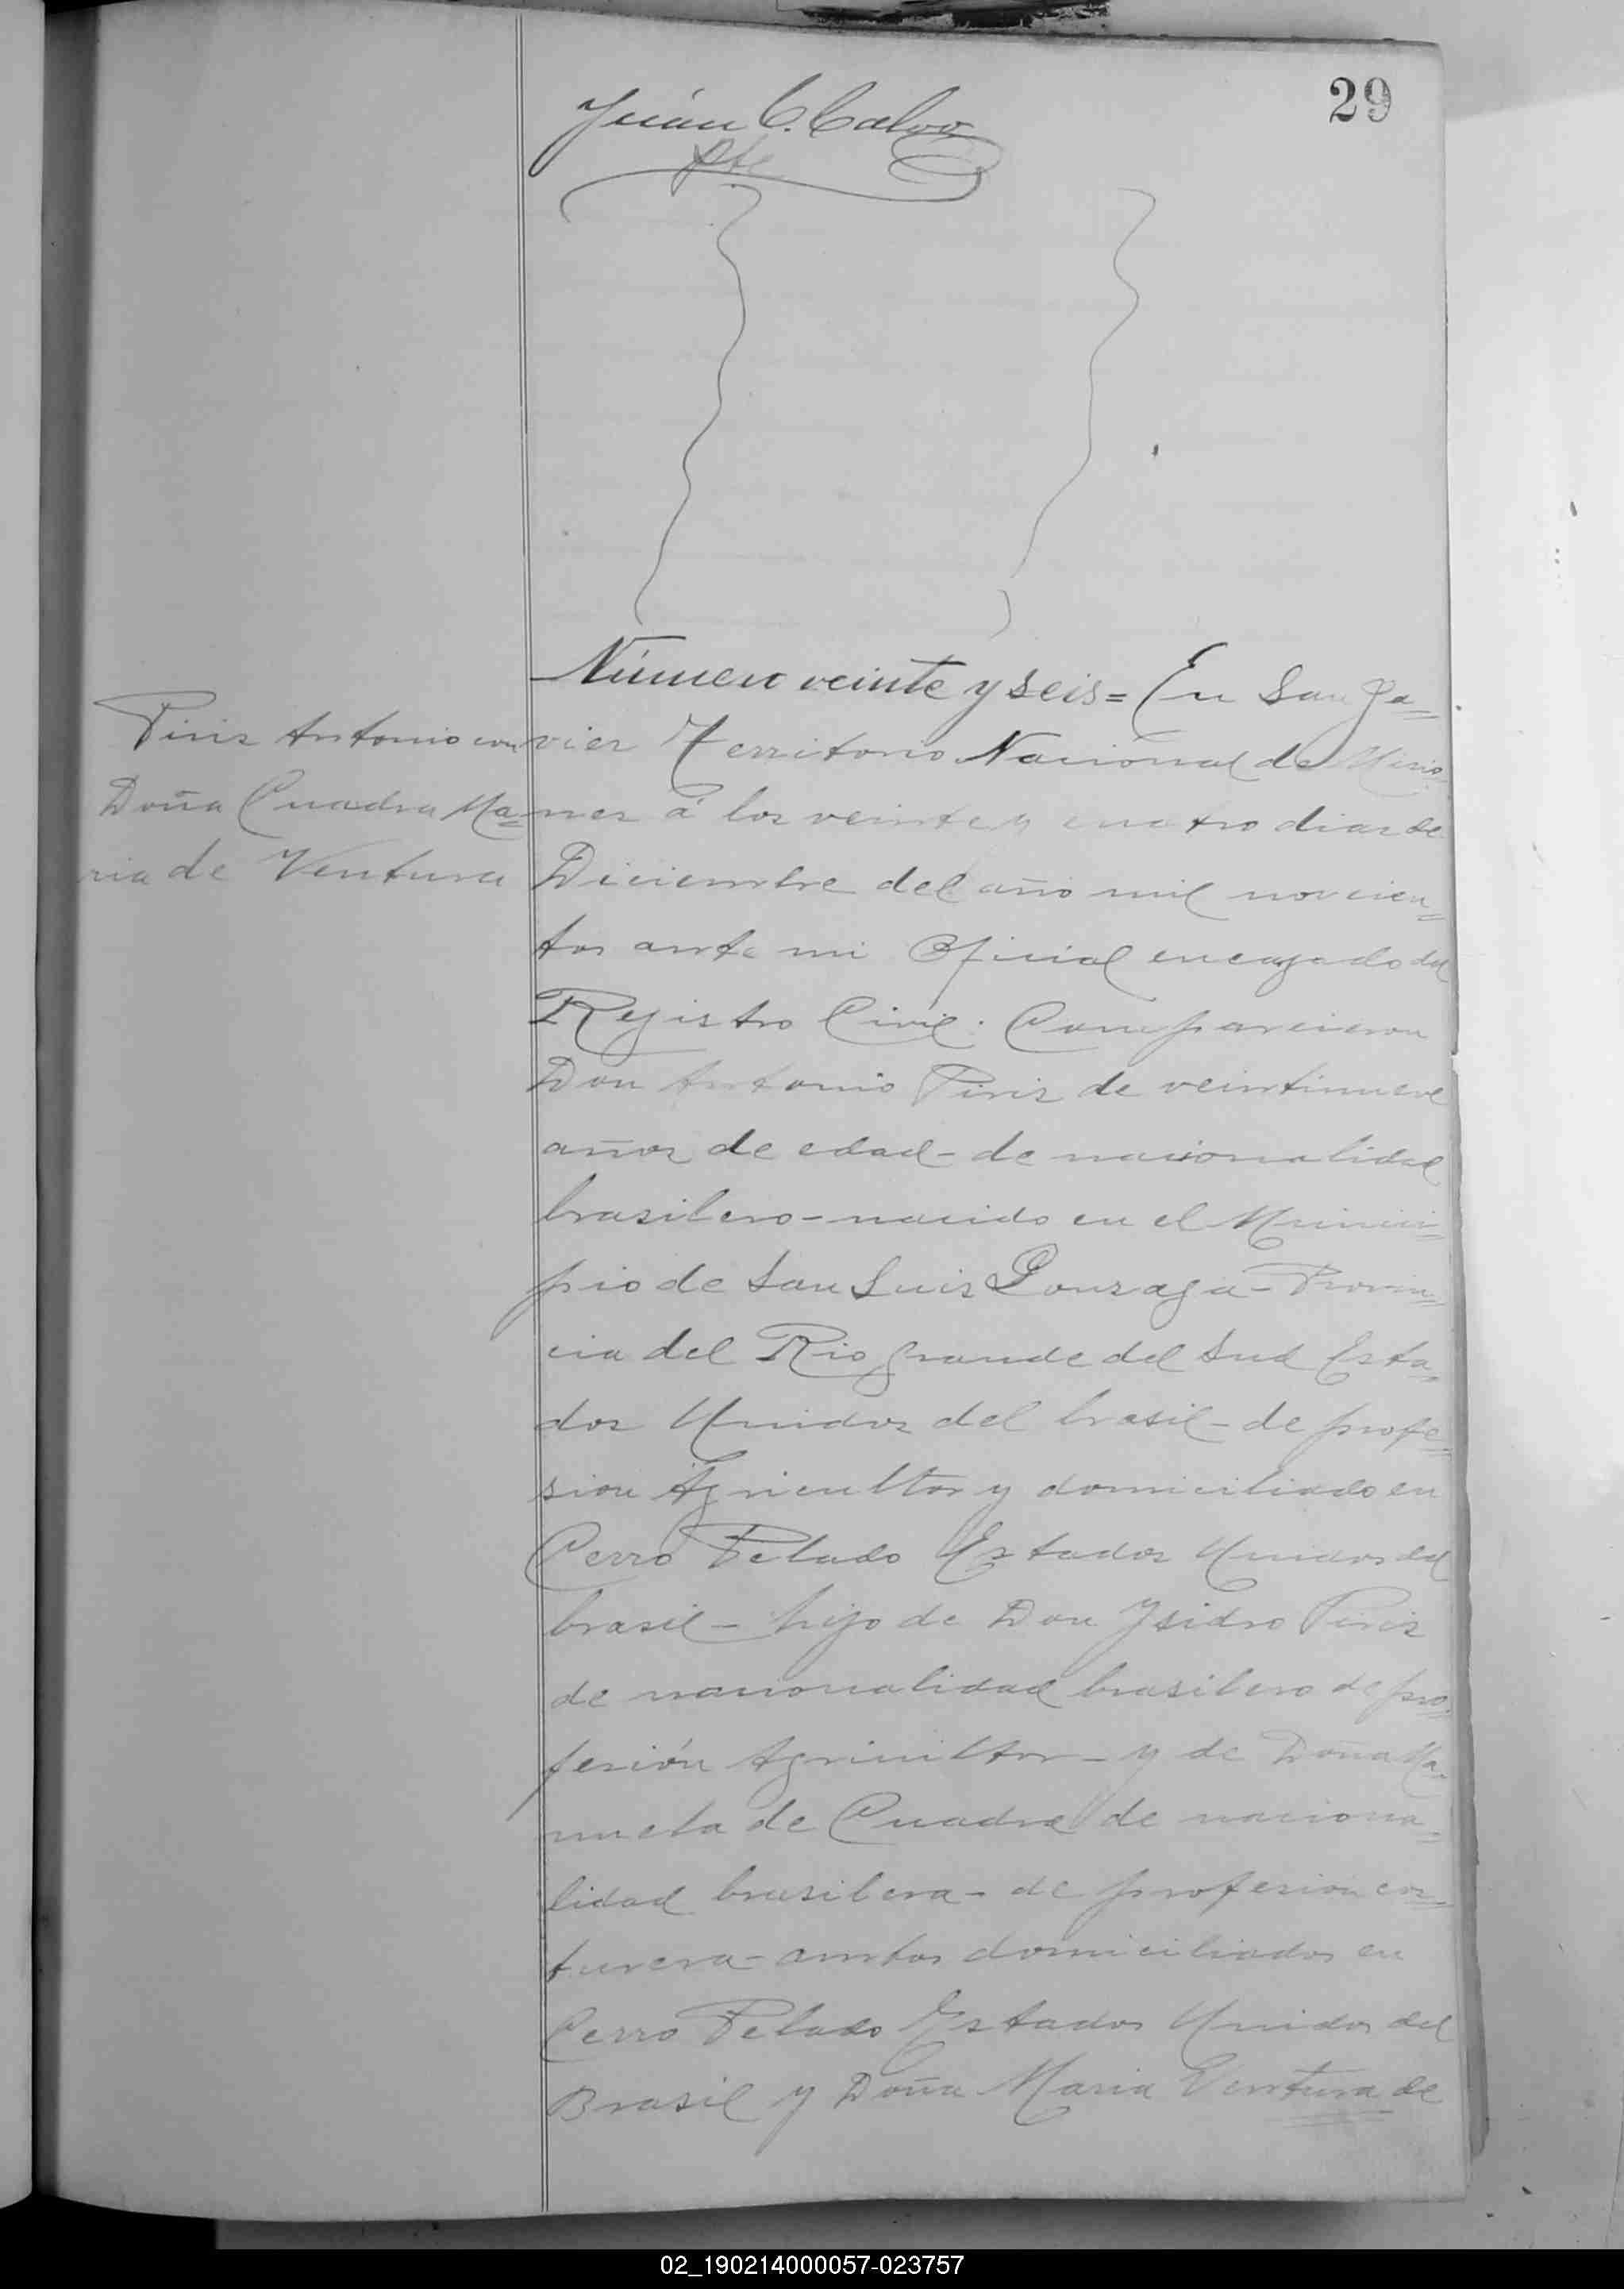 29
Juán C. Calvo
pte
Piris Antonio con
Doña Cuadra Ma=
ria de Ventura
Número veinte y seis= En San Ja=
vier Territorio Nacional de Misio=
nes á los veinte y cuatro dias de
Diciembre del año mil novecien=
tos ante mi Oficial encargado del
Registro Civil: Comparecieron
Don Antonio Piris de veintinueve
años de edad- de nacionalidad
brasilero- nacido en el Munici=
pio de San Luis Gonzaga- Provin=
cia del Rio grande del Sud Esta=
dos Unidos del brasil- de profe=
sion Agricultor y domiciliado en
Cerro Pelado Estados Unidos del
brasil- hijo de Don Ysidro Piris
de nacionalidad brasilero de pro=
fesión Agricultor- y de Doña Ma=
nuela de Cuadra de naciona=
lidad brasilera- de profesion cos=
turera- ambos domiciliados en
Cerro Pelado Estados Unidos del
Brasil y Doña Maria Ventura de
02_190214000057-023757